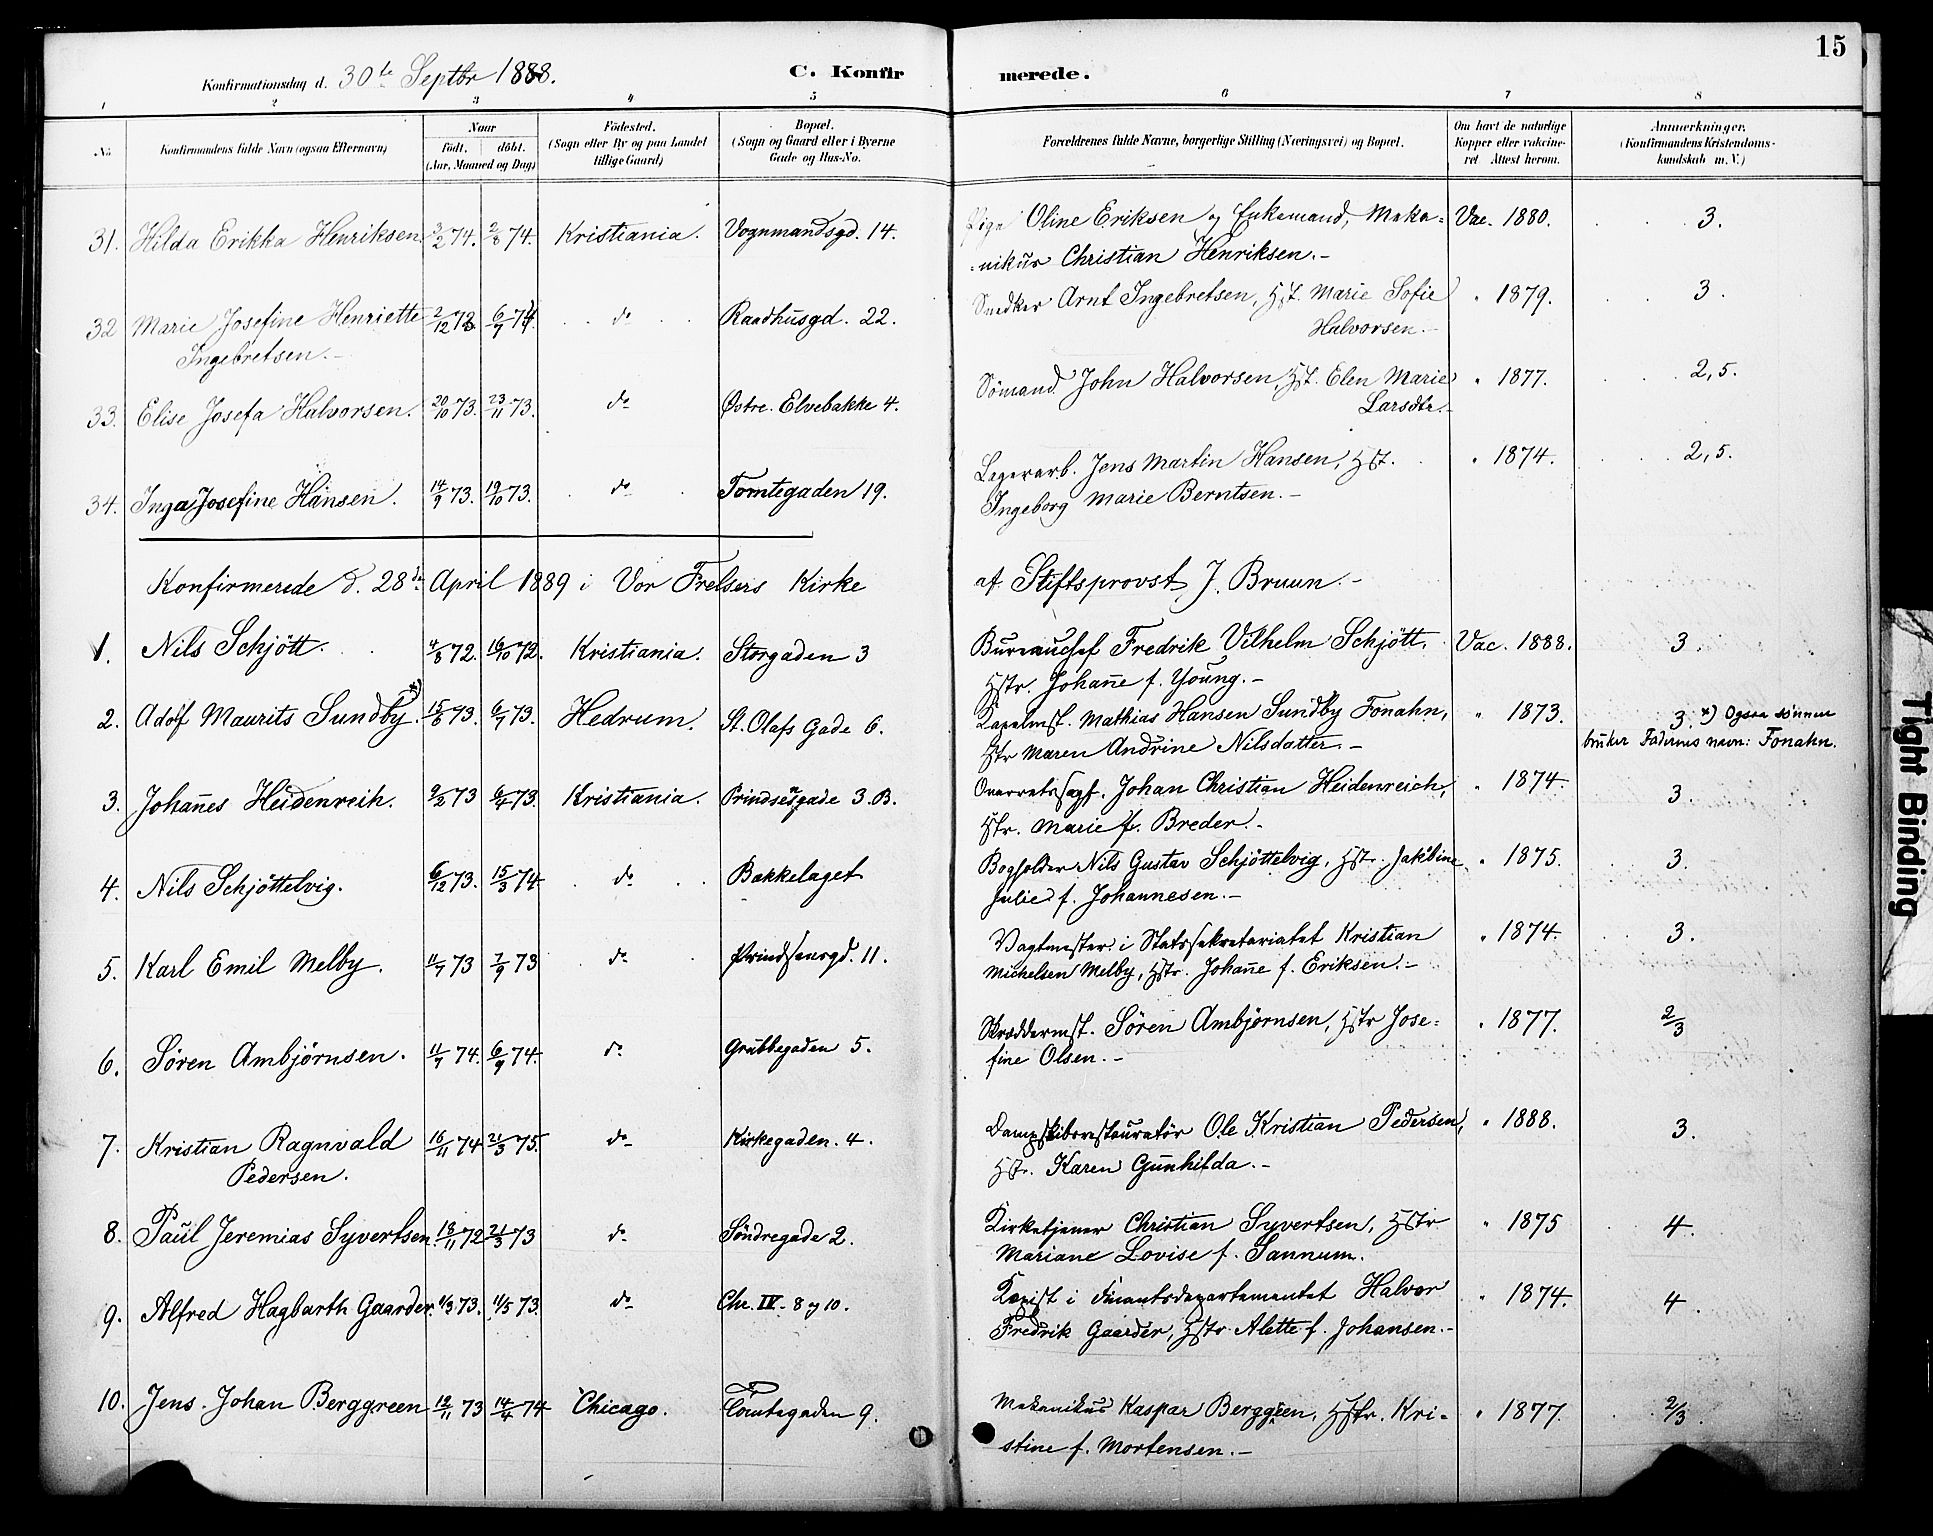 15
Konfirmationsdag d. 30te Septbr 1888. C. Konfirmerede.
1 2 3 4 5 6 7 8
No. Konfirmandens fulde Navn (ogsaa Efternavn) Naar født. døbt. (Aar, Maaned og Dag) Fødested. (Sogn eller By og paa Landet tillige Gaard) Bopæl. (Sogn og Gaard eller i Byerne Gade og Hus-No. Forældrenes fulde Navne, borgerlige Stilling (Næringsvei) og Bopæl. Om havt de naturlige Kopper eller vakcineret. Attest herom. Anmærkninger. (Konfirmandens Kristendomskundskab m. V.)
31. Hilda Erikka Henriksen 2/2 74. 2/8 74. Kristiania. Vognmandsgd. 14. Pige Oline Eriksen og Enkemand, Meka- Vac. 1880. 3.
nikus Christian Henriksen.-
32 Marie Josefine Henriette 2/12 73 6/7 74. do Raadhusgd. 22. Snedker Arnt Ingebretsen, Hst. Marie Sofie " 1879. 3.
Ingebretsen.- Halvorsen.-
33. Elise Josefa Halvorsen. 20/10 73. 23/11 73. do Østre. Elvebakke 4. Sömand John Halvorsen, Hst. Elen Marie " 1877. 2,5.
Larsdtr.-
34. Inga Josefine Hansen. 14/9 73. 19/10 73. do Tomtegaden 19. Legerarb. Jens Martin Hansen, Hst. " 1874. 2,5.
Ingeborg Marie Berntsen.-
Konfirmerede d. 28de April 1889 i Vor Frelsers Kirke af Stiftsprovst J. Bruun.-
1. Nils Schjött. 4/8 72. 16/10 72. Kristiania. Storgaden 3 Bureauchef Fredrik Vilhelm Schjött, Vac. 1888. 3
Hstr. Johanne f. Young.-
2. Adolf Maurits Sundby.*) 15/6 73. 6/7 73. Hedrum. St. Olafs Gade 6. Kapelmst. Mathias Hansen Sundby Fonahn, " 1873. 3. *) Ogsaa sönnen
Hstr Maren Andrine Nilsdatter.- bruker Faderens navn: Fonahn.
3. Johannes Heidenreich. 9/2 73 6/4 73. Kristiania. Prindsensgade 3.B. Overretssagf. Johan Christian Heidenreich, " 1874. 3.
Hstr. Marie f. Breder.-
4. Nils Schjöttelvig. 6/12 73. 15/3 74 do Bakkelaget Bogholder Nils Gustav Schjöttelvig, Hst. Jakobine " 1875. 3.
Julie f. Johannesen.-
5. Karl Emil Melby. 11/7 73 7/9 73 do Prindsensgd. 11. Vagtmester i Statssekretariatet Kristian " 1874. 3.
Michelsen Melby, Hstr. Johanne f. Eriksen.-
6. Søren Ambjørnsen. 11/7 74. 6/9 74. do Grubbegaden 5. Skræddermst. Søren Ambjørnsen, Hstr Jose- " 1877. 2/3
fine Olsen.-
7. Kristian Ragnvald 16/11 74 21/3 75. do Kirkegaden. 4. Dampskibsrestauratör Ole Kristian Pedersen, " 1888. 3.
Pedersen. Hst. Karen Gunhilda.-
8. Paul Jeremias Syvertsen 18/11 72 21/3 73 do Söndregade 2. Kirketjener Christian Syvertsen, Hstr " 1875 4.
Mariane Lovise f. Sannum.
9. Alfred Hagbarth Gaarder. 1/3 73. 11/5 73. do Chr. IV - 8 og 10. Kopist i Finantsdepartementet Halvor " 1874. 4.
Fredrik Gaarder, Hstr Alette f. Johansen.-
10. Jens Johan Berggreen 12/11 73 14/4 74 Chicago. Tomtegaden 9. Mekanikus Kaspar Berggreen, Hstr. Kri- " 1877. 2/3.
stine f. Mortensen.-
Tight Binding